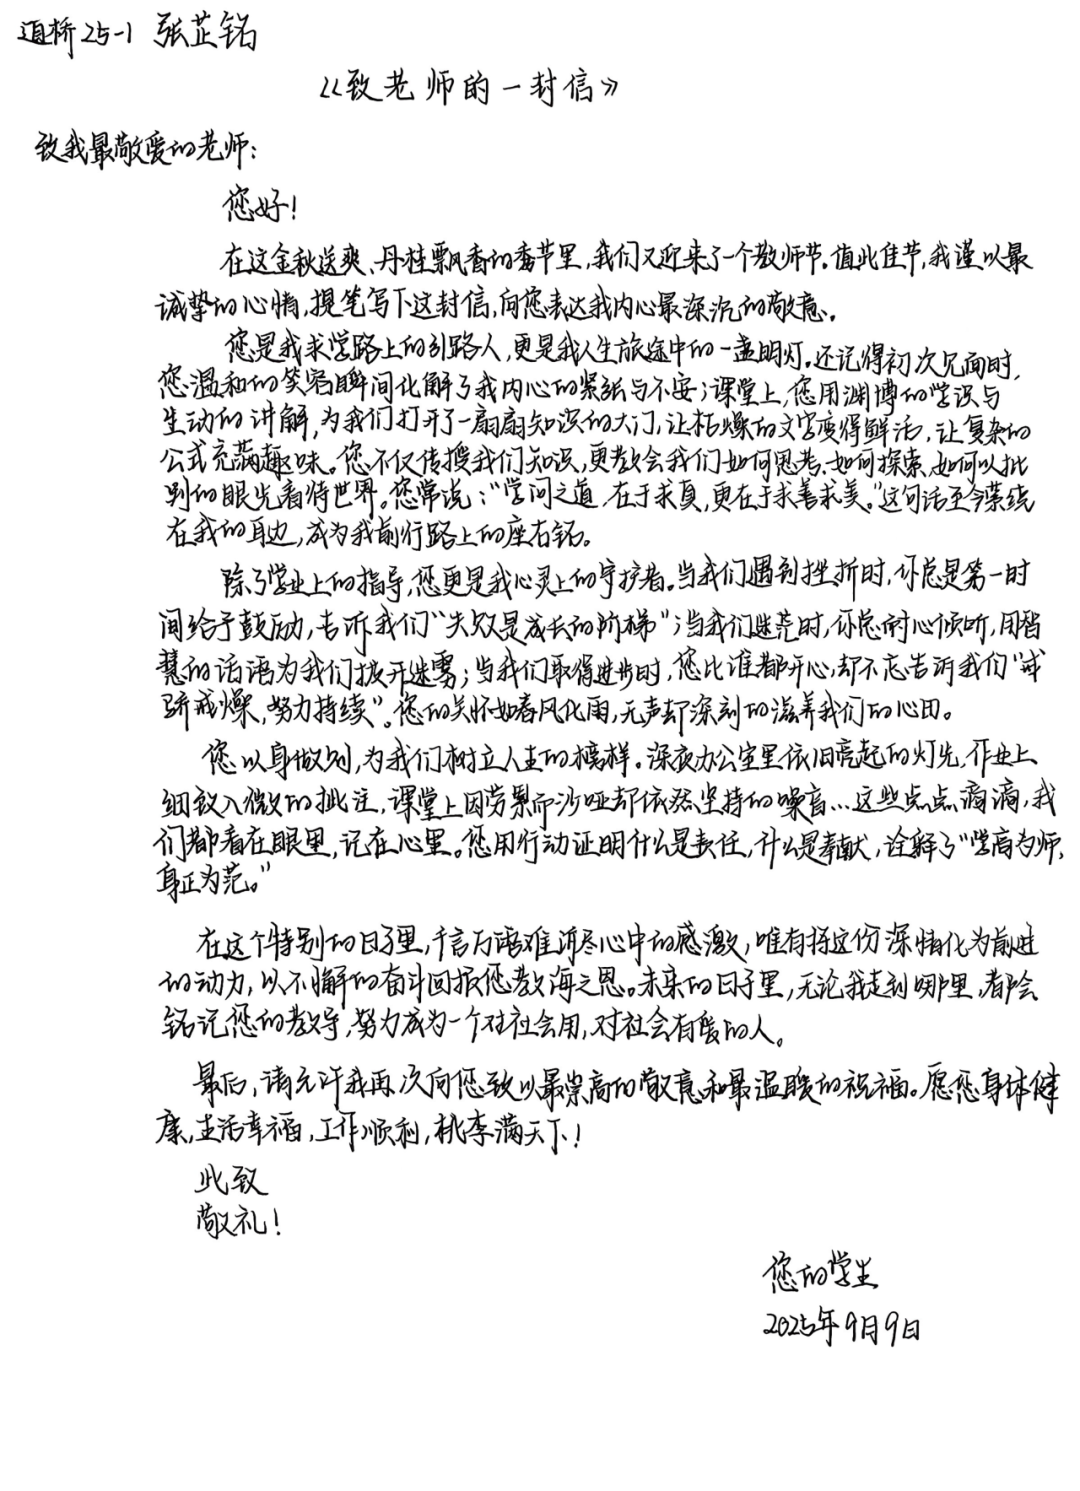 道桥25-1 张芷铭
《致老师的一封信》
致我最敬爱的老师：
您好！
在这金秋送爽、丹桂飘香的季节里，我们又迎来了一个教师节。值此佳节，我谨以最
诚挚的心情，提笔写下这封信，向您表达我内心最深沉的敬意。
您是我求学路上的引路人，更是我人生旅途中的一盏明灯。还记得初次见面时，
您温和的笑容瞬间化解了我内心的紧张与不安；课堂上，您用渊博的学识与
生动的讲解，为我们打开了一扇扇知识的大门，让枯燥的文字变得鲜活，让复杂的
公式充满趣味。您不仅传授我们知识，更教会我们如何思考、如何探索、如何以批
判的眼光看待世界。您常说："学问之道，在于求真，更在于求善求美。"这句话至今萦绕
在我的耳边，成为我前行路上的座右铭。
除了学业上的指导，您更是我心灵上的守护者。当我们遇到挫折时，你总是第一时
间给予鼓励，告诉我们"失败是成长的阶梯"；当我们迷茫时，你总耐心倾听，用智
慧的话语为我们拨开迷雾；当我们取得进步时，您比谁都开心，却不忘告诉我们"戒
骄戒燥，努力持续"。您的关怀如春风化雨，无声却深刻的滋养我们的心田。
您以身做则，为我们树立人生的榜样。深夜办公室里依旧亮起的灯光，作业上
细致入微的批注，课堂上因劳累而沙哑却依然坚持的嗓音…这些点点滴滴，我
们都看在眼里，记在心里。您用行动证明什么是责任，什么是奉献，诠释了"学高为师，
身正为范。"
在这个特别的日子里，千言万语难诉尽心中的感激，唯有将这份深情化为前进
的动力，以不懈的奋斗回报您教诲之恩。未来的日子里，无论我走到哪里，都会
铭记您的教导，努力成为一个对社会用，对社会有爱的人。
最后，请允许我再次向您致以最崇高的敬意和最温暖的祝福。愿您身体健
康，生活幸福，工作顺利，桃李满天下！
此致
敬礼！
您的学生
2025年9月9日